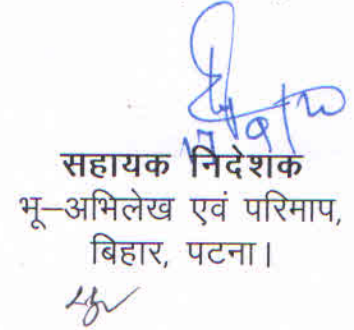 सहायक निदेशक
भू–अभिलेख एवं परिमाप,
बिहार, पटना।